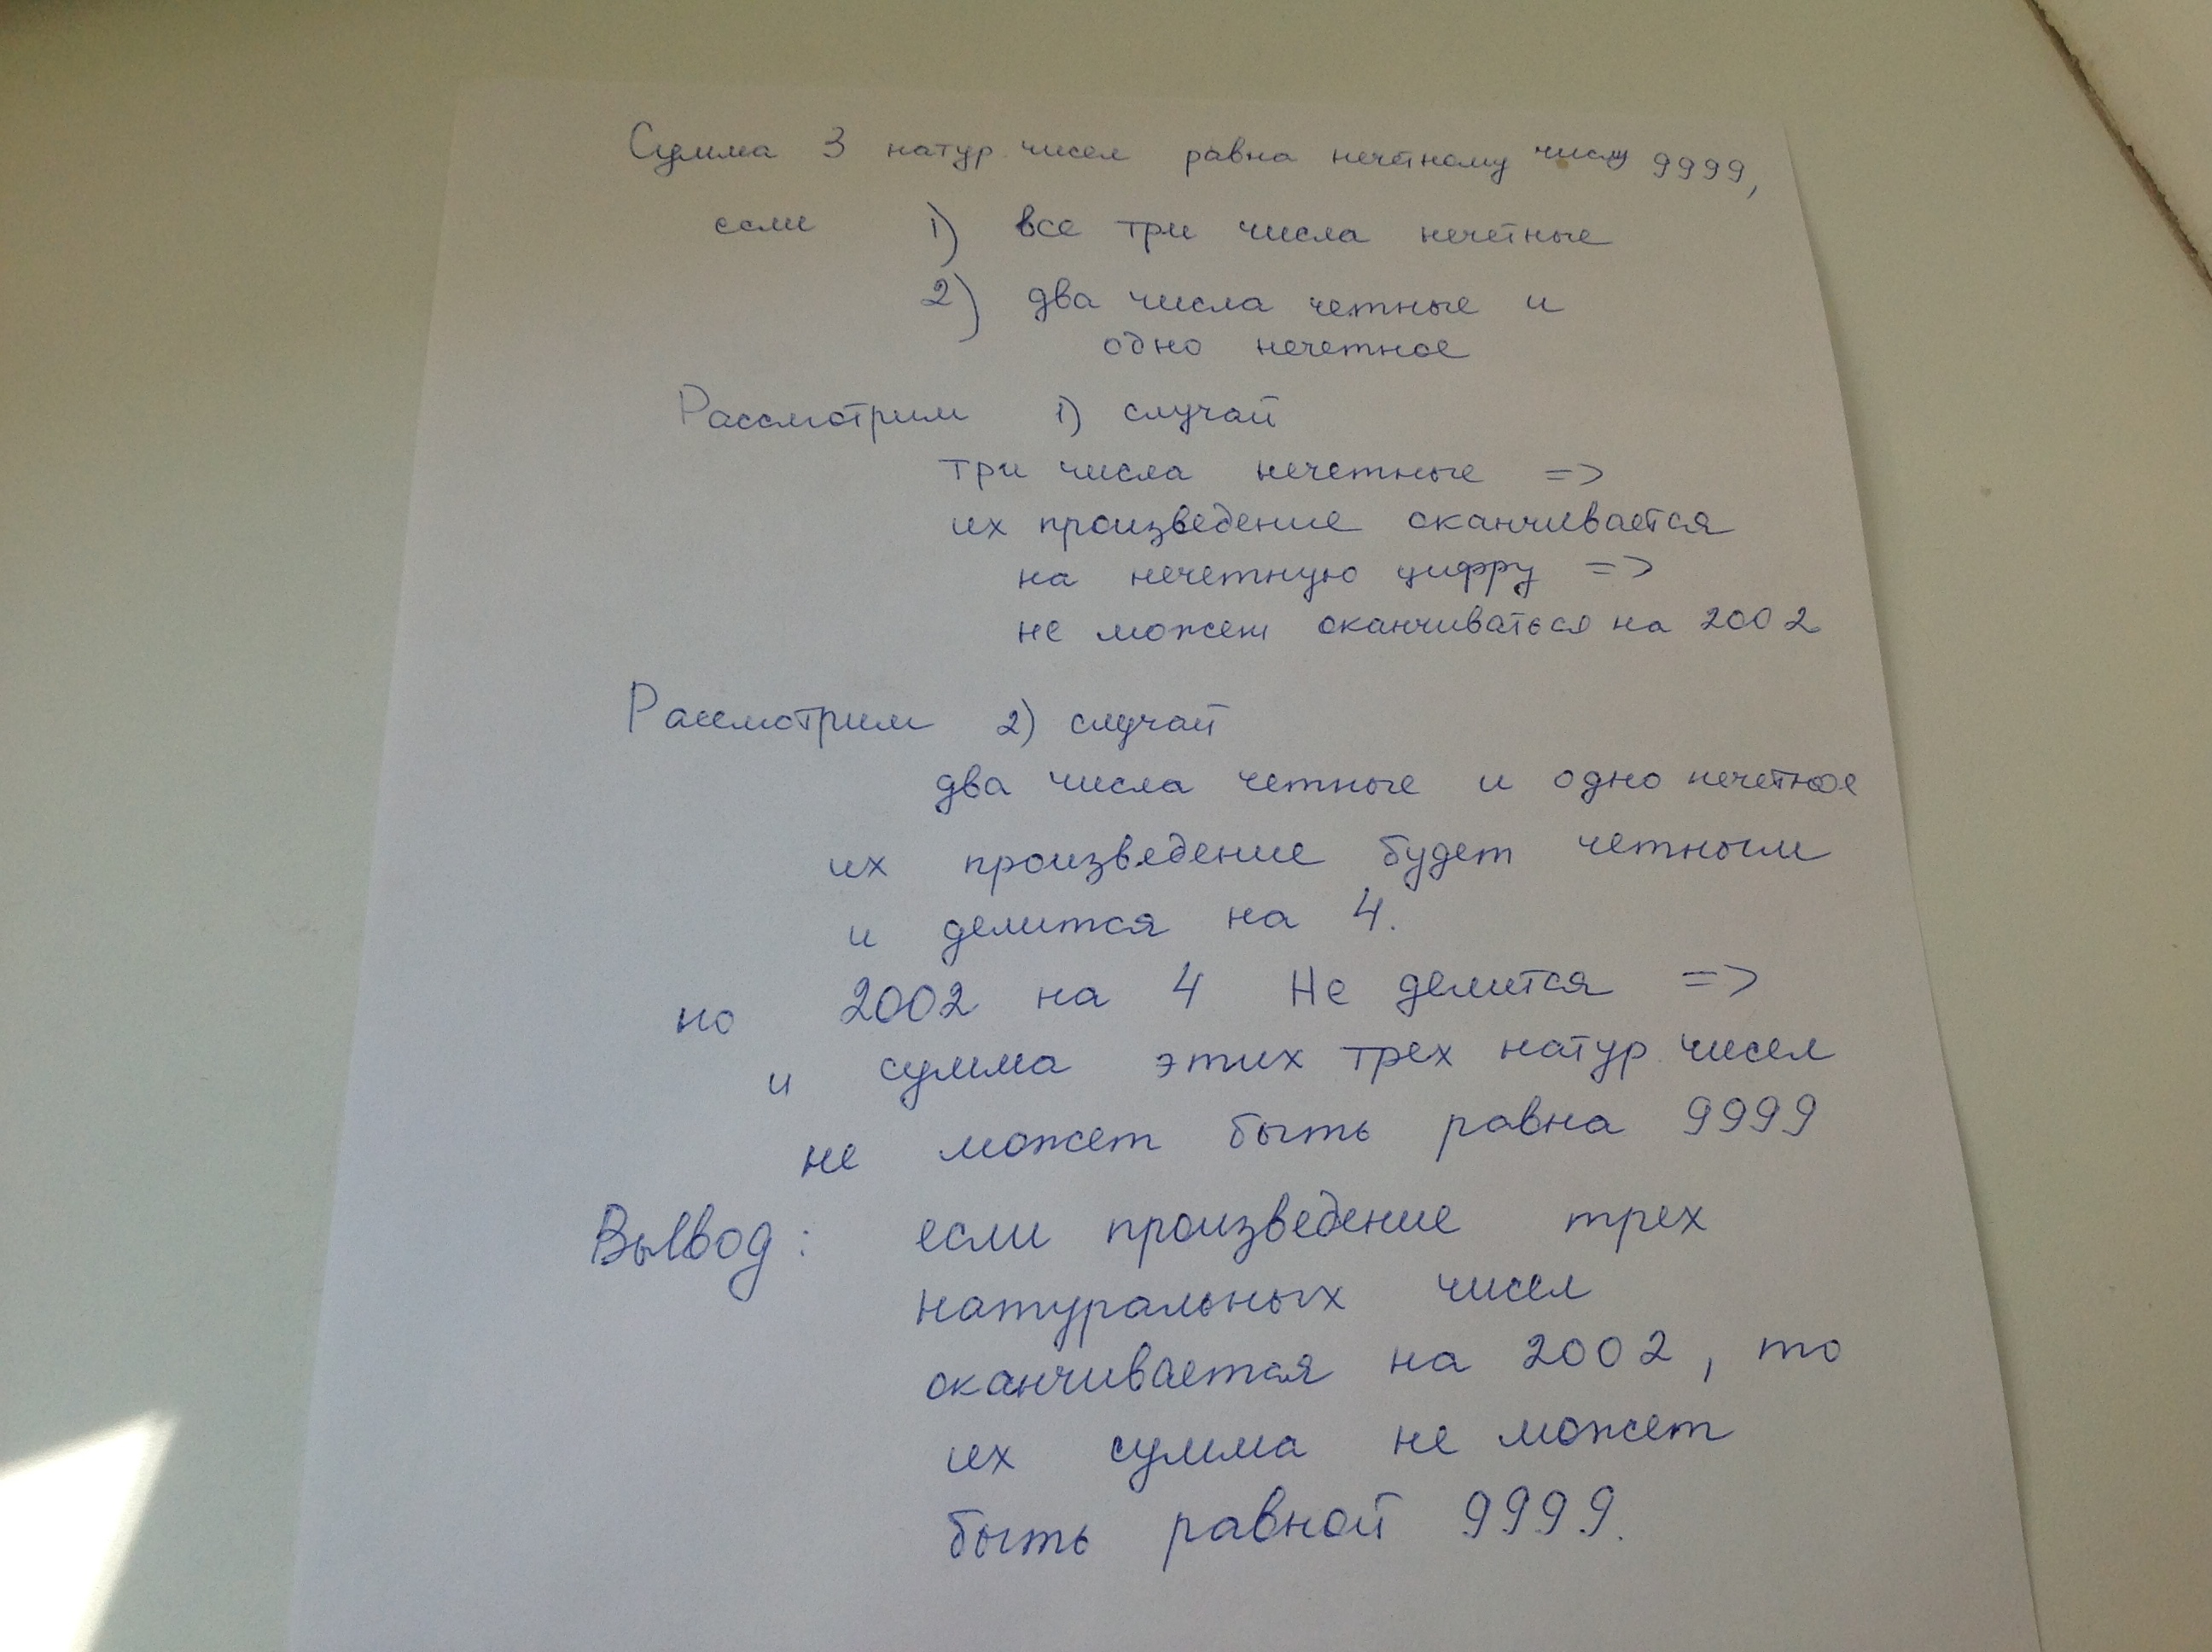 Сумма 3 натур. чисел равна нечетному числу 9999,
если 1) все три числа нечетные
2) два числа четные и
одно нечетное
Рассмотрим 1) случай
три числа нечетные =>
их произведение оканчивается
на нечетную цифру =>
не может оканчиваться на 2002
Рассмотрим 2) случай
два числа четные и одно нечетное
их произведение будет четным
и делится на 4.
но 2002 на 4 Не делится =>
и сумма этих трех натур. чисел
не может быть равна 9999
Вывод: если произведение трех
натуральных чисел
оканчивается на 2002, то
их сумма не может
быть равной 9999.